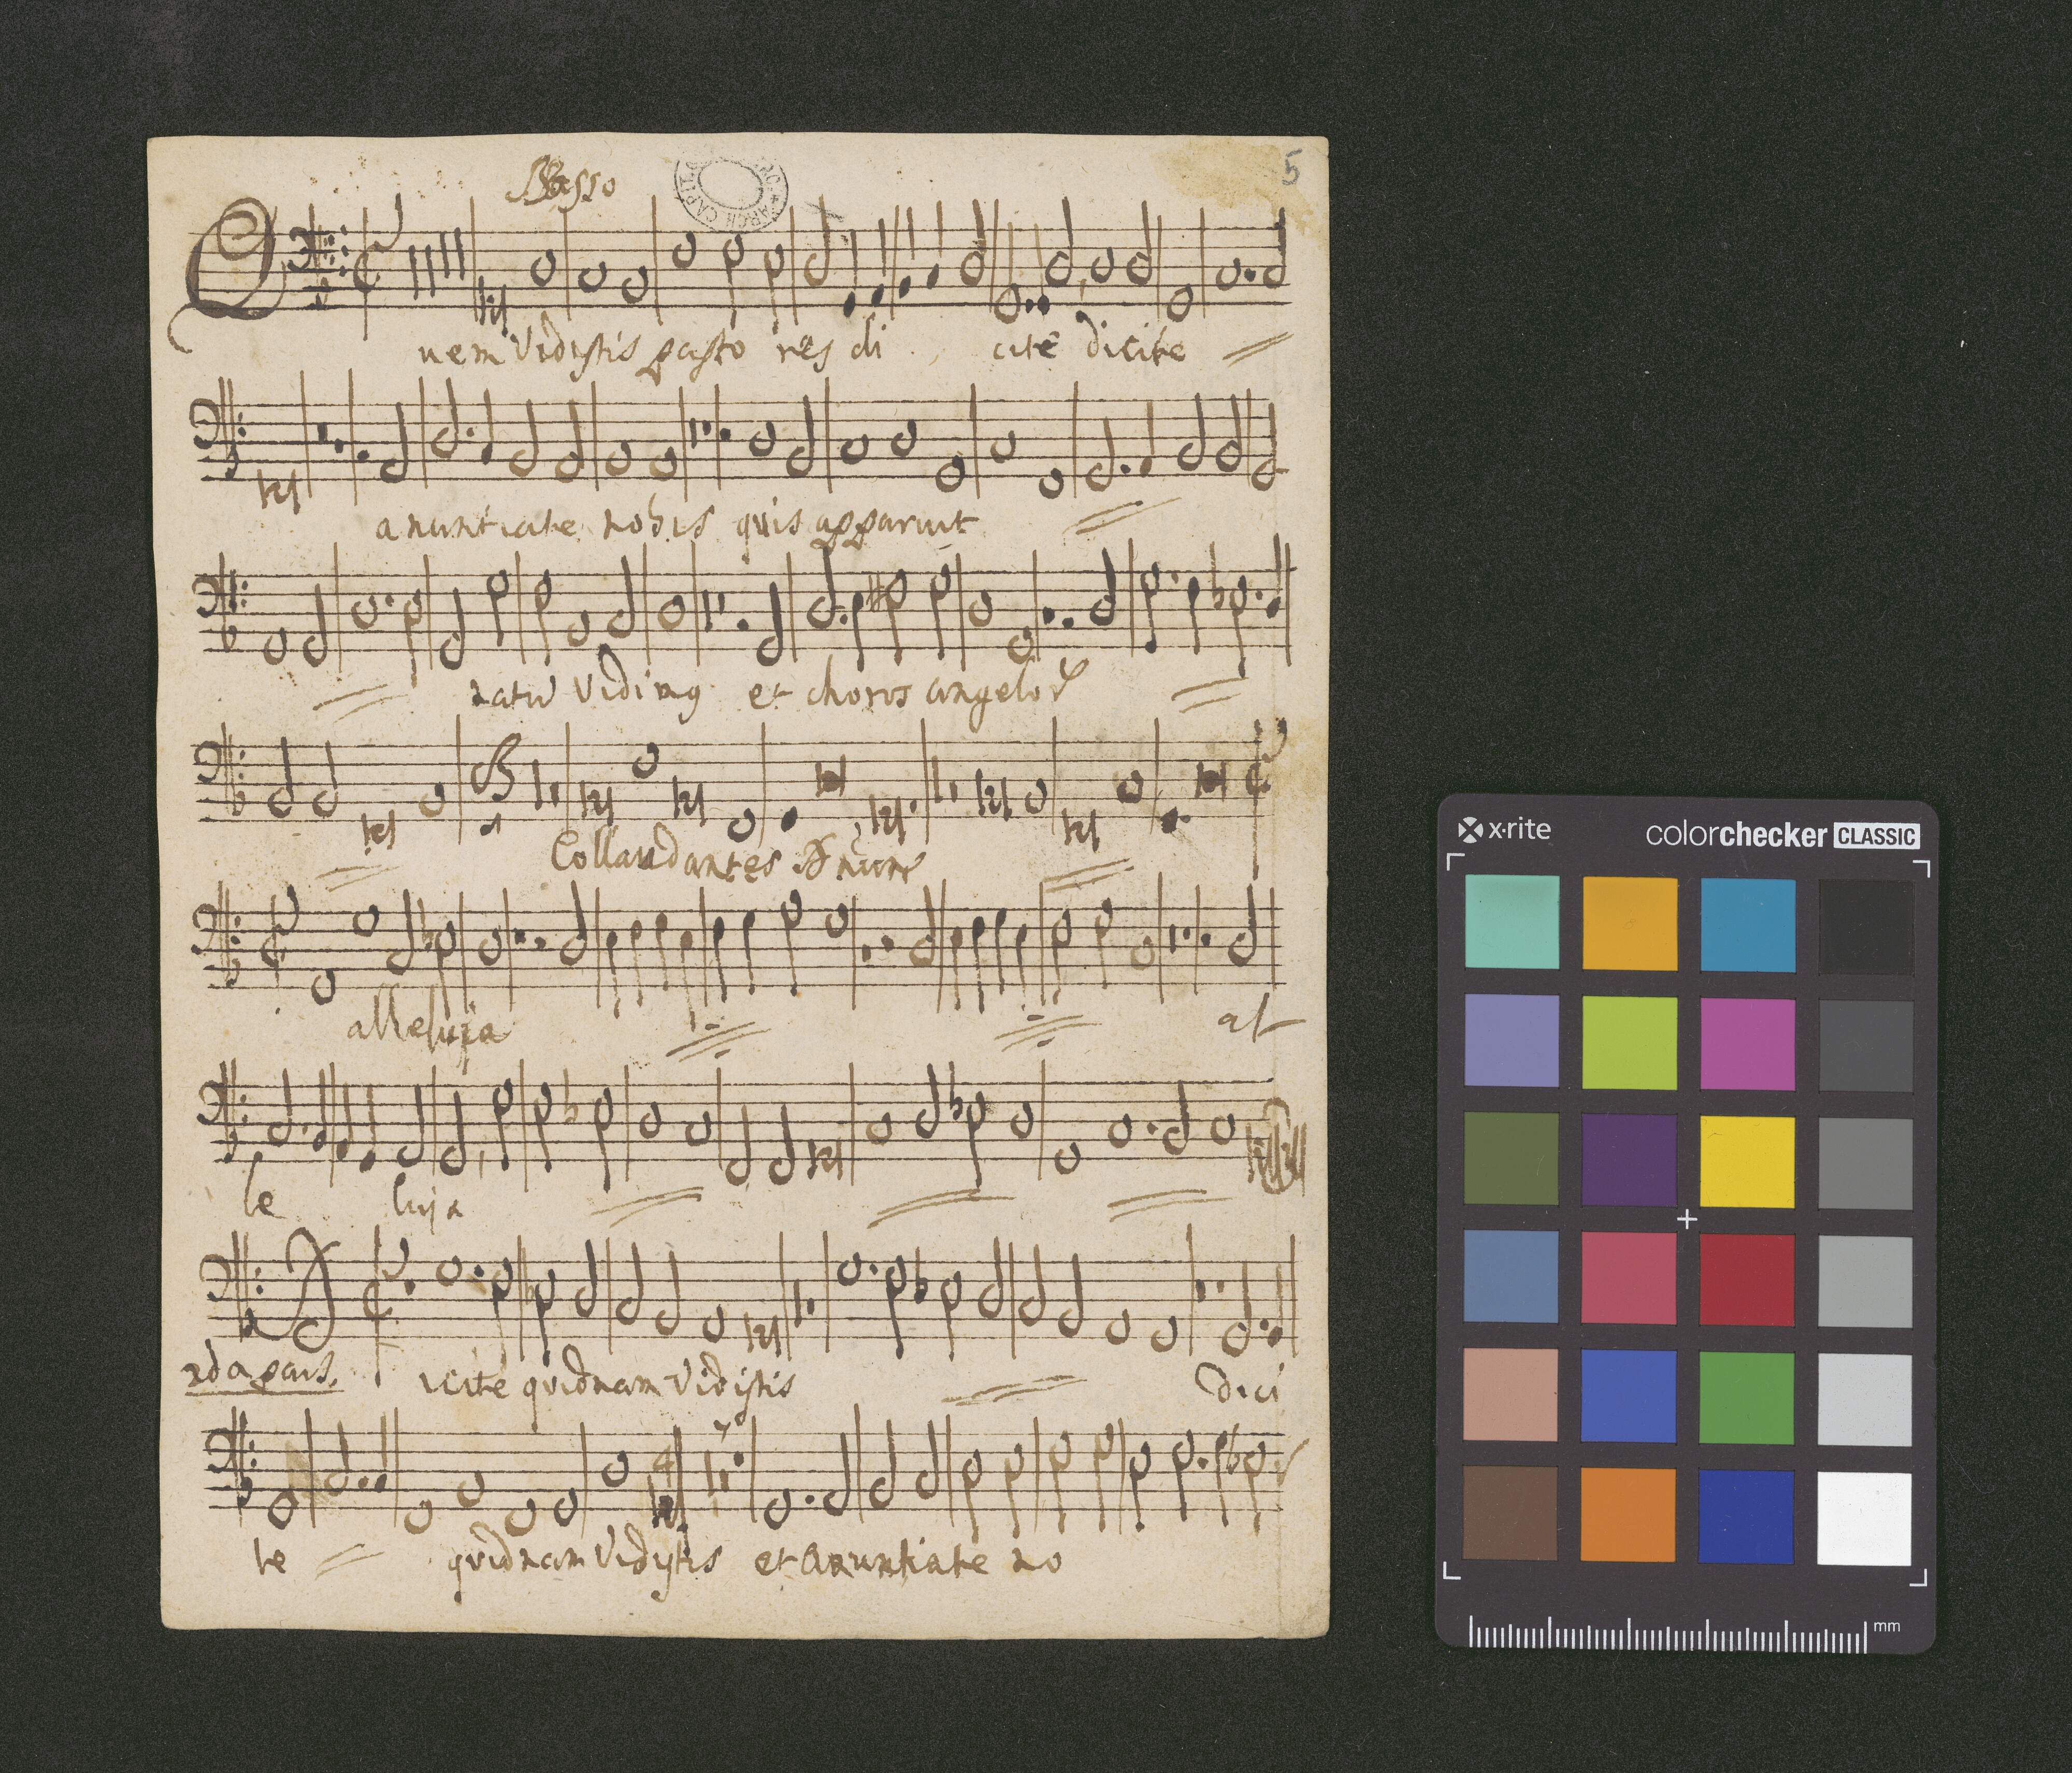 Basso
5
Quem Vidistis pasto res di cite dicite
anuntiate nobis quis apparuit
natũ Vidimq et choros angeloꝝ
Collaudantes Dñum
alleluja al
le luja
2da pars. Dicite quidnam Vidistis dici
te quidnam Vidistis et anuntiate no
x·rite colorchecker CLASSIC
mm